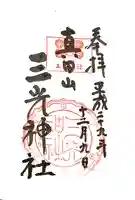 奉拝 平成二十九年
十二月九日
真田山
三光神社